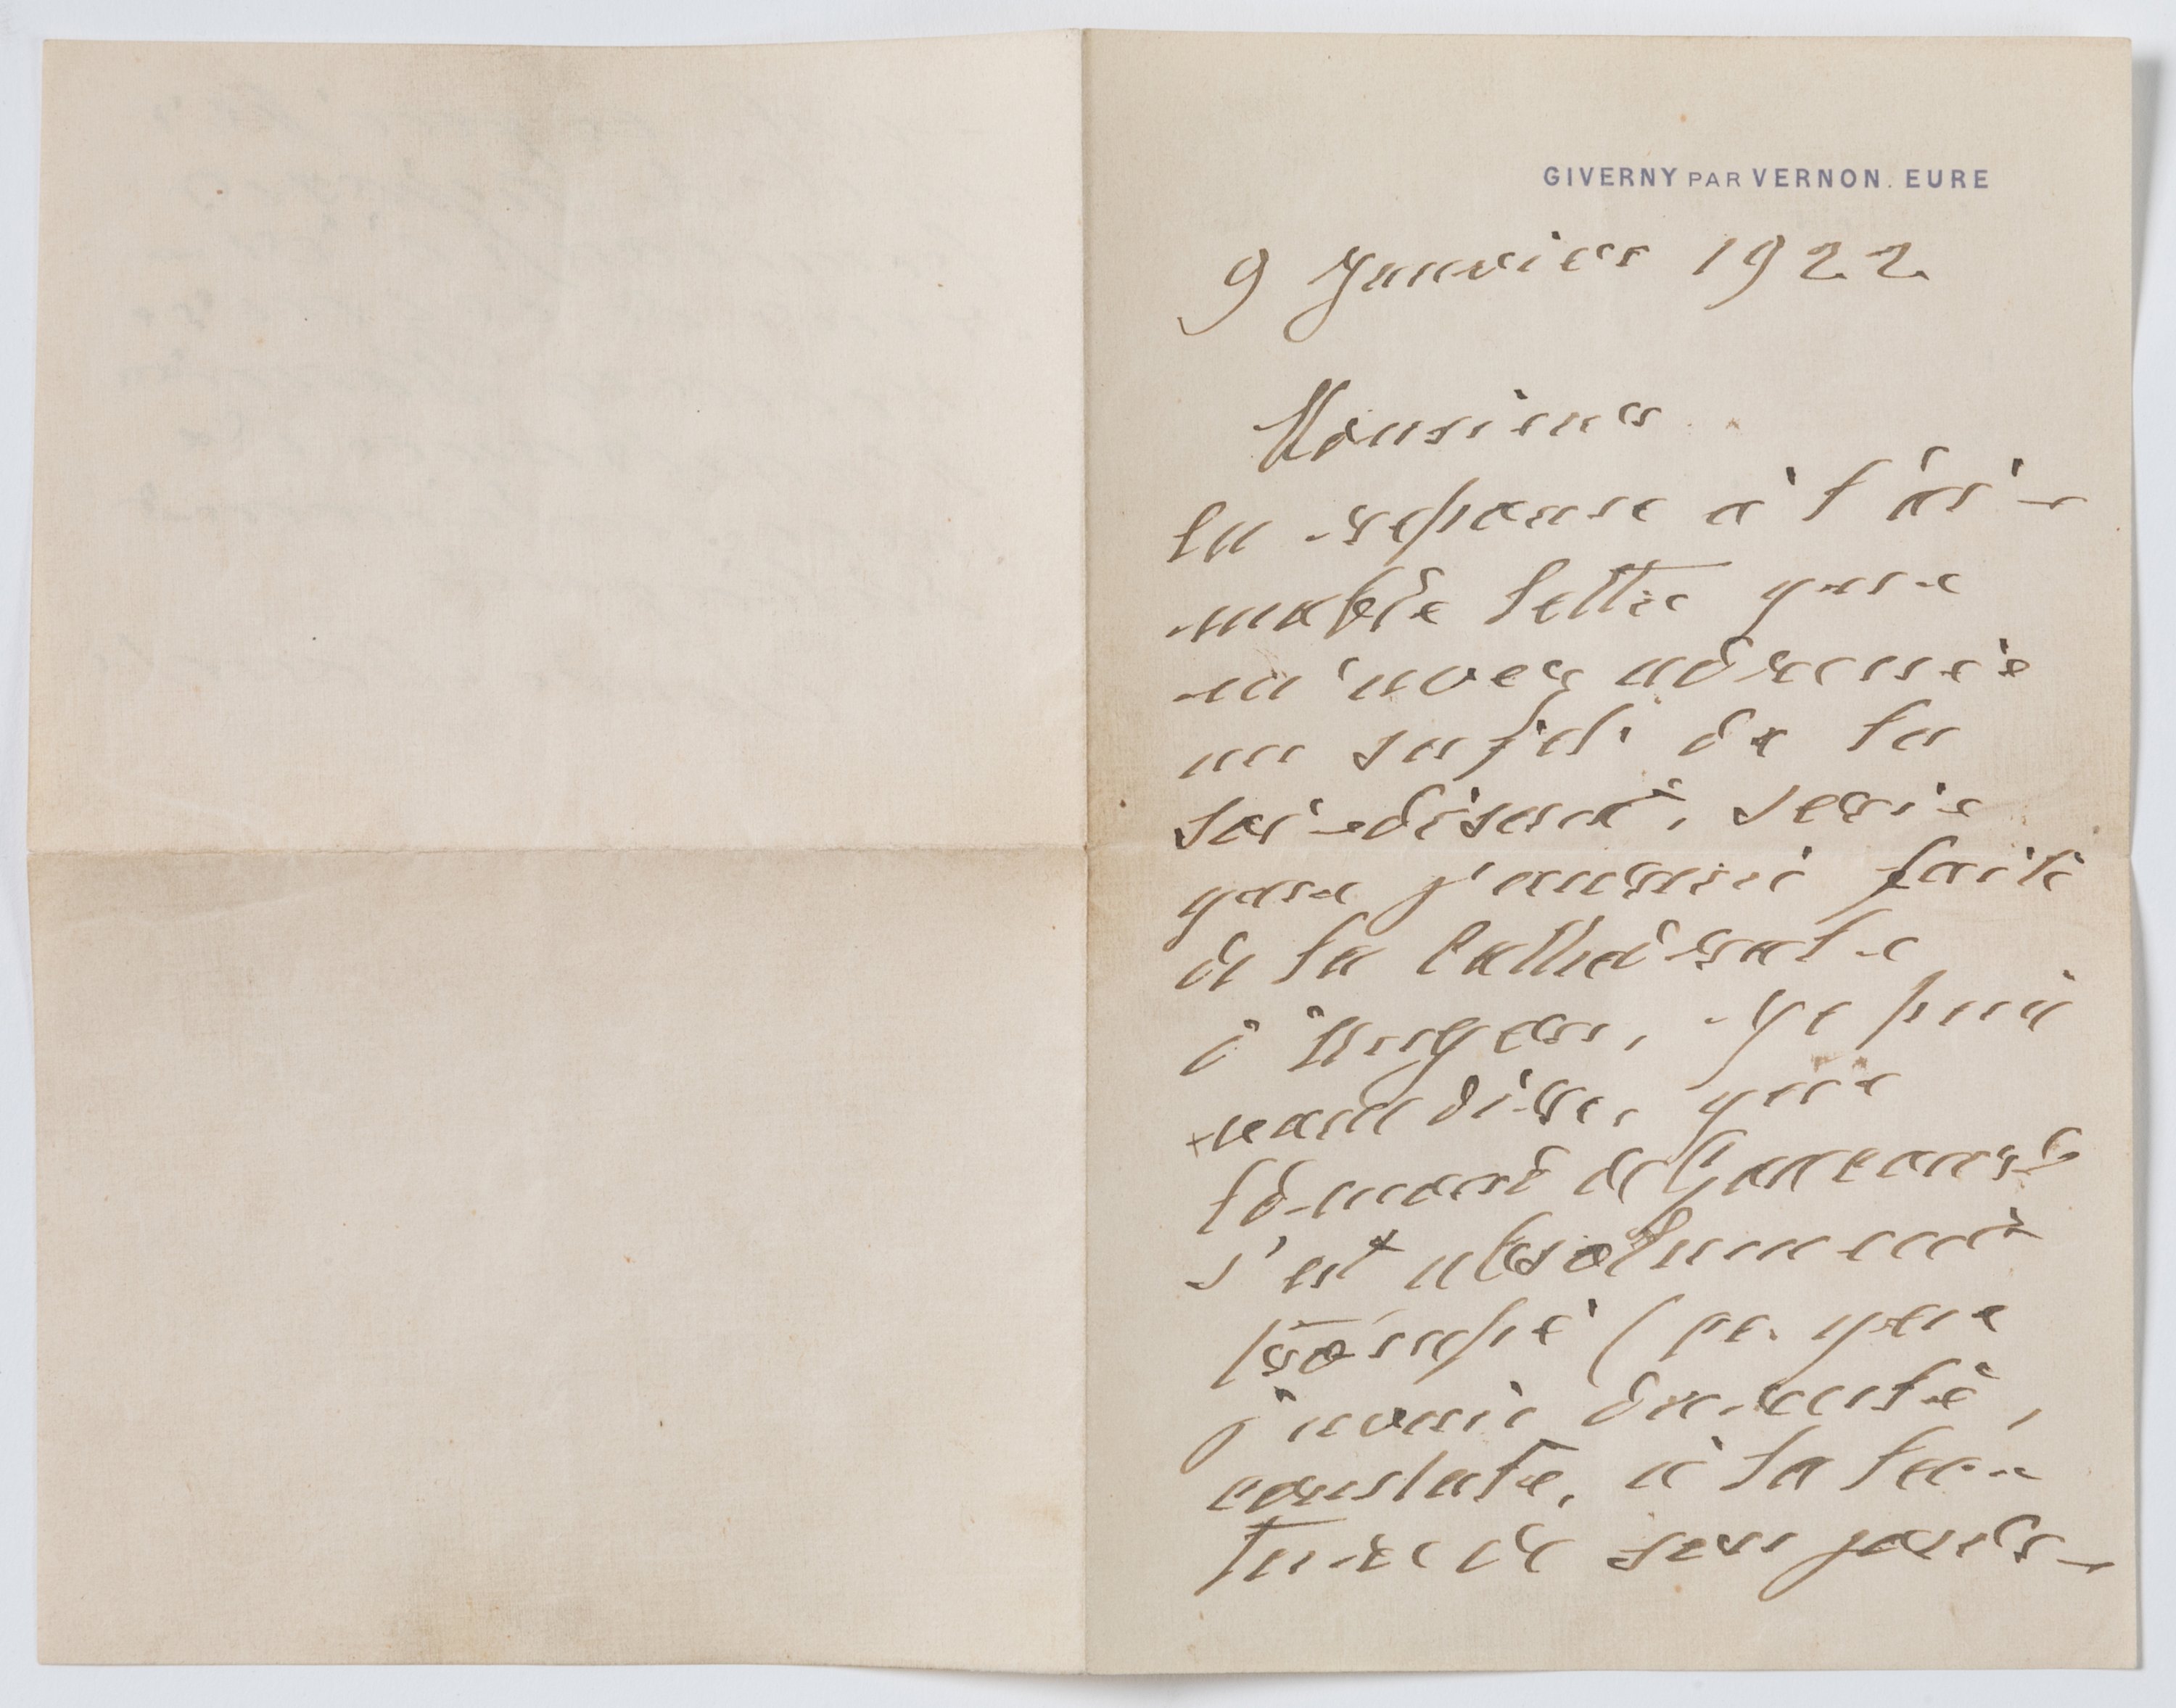 GIVERNY PAR VERNON. EURE
9 Janvier 1922
Monsieur
En reponse à l'ai-
mable lettre que
m'avez adressée
au sujet de la
soi-disant, serie
que j'aurais faite
de la Cathédrale
d'Angers, Je puis
vous dire, que
Edmond de Goncourt
s'est absolument
trompé (ce que
j'avais du reste,
constaté, à la lec-
ture de son jour-